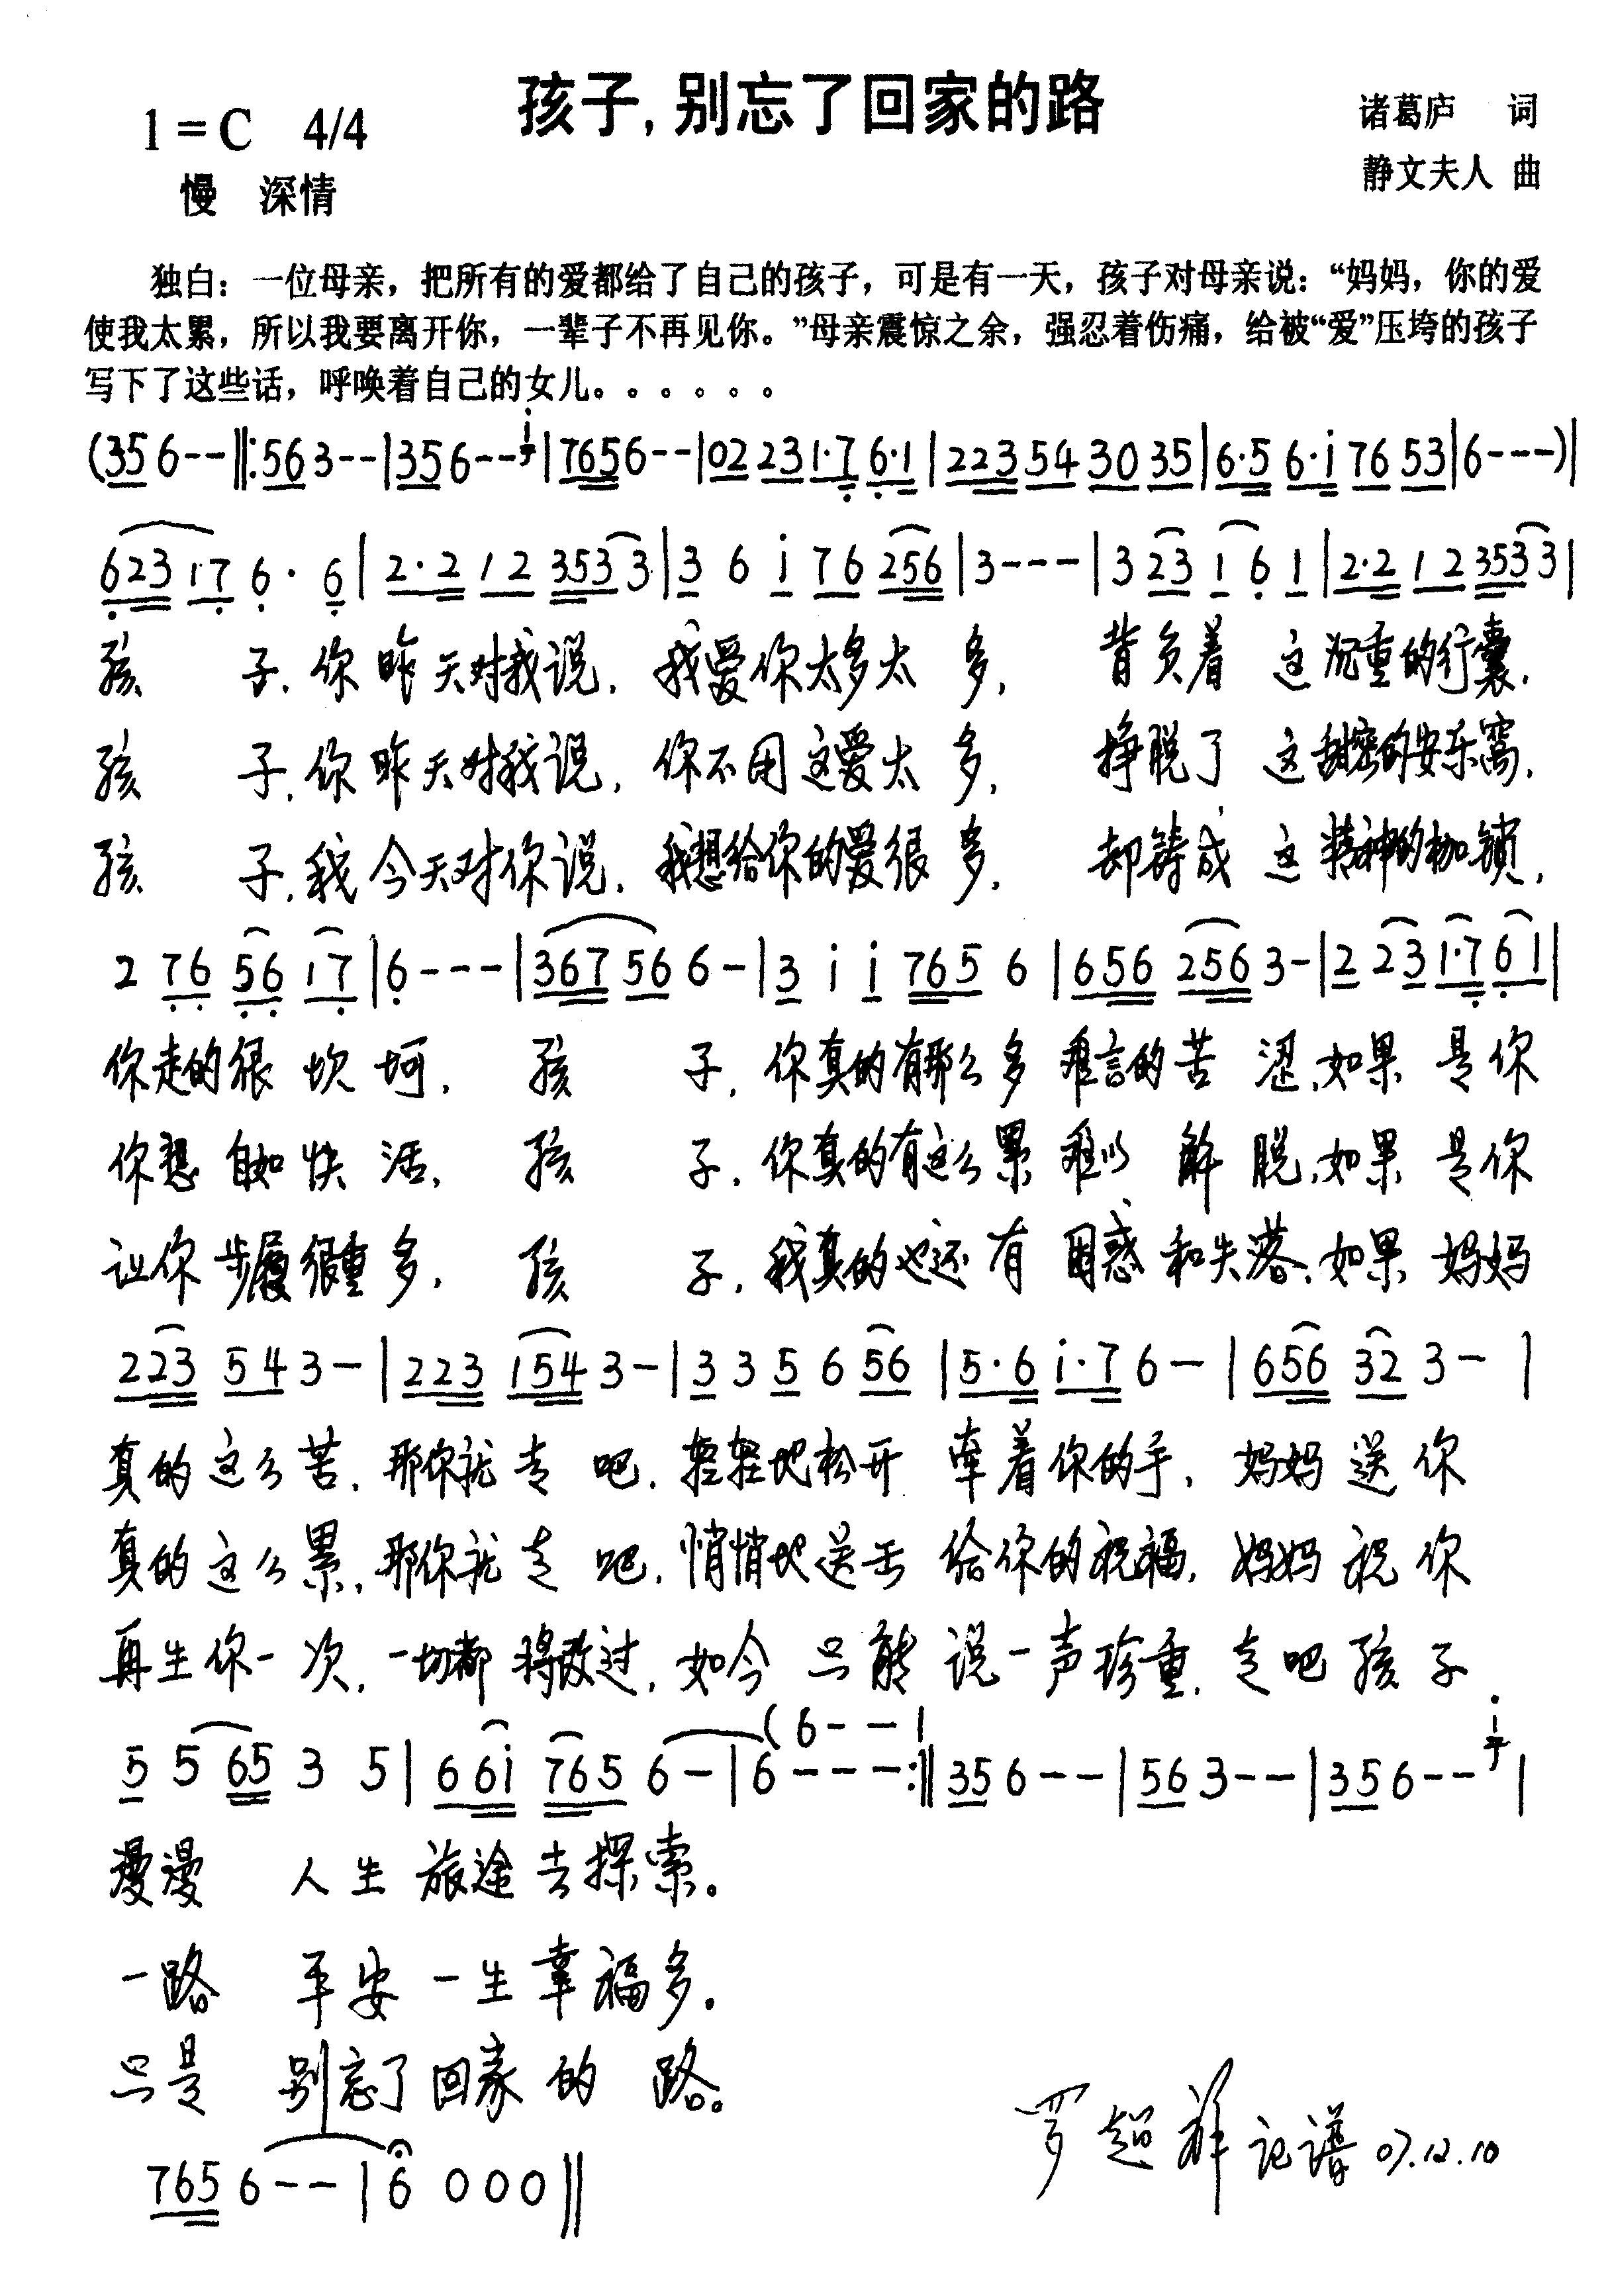 孩子,别忘了回家的路
1=C 4/4
诸葛庐 词
慢 深情
静文夫人 曲
独白：一位母亲，把所有的爱都给了自己的孩子，可是有一天，孩子对母亲说：“妈妈，你的爱
使我太累，所以我要离开你，一辈子不再见你。”母亲震惊之余，强忍着伤痛，给被“爱”压垮的孩子
写下了这些话，呼唤着自己的女儿。。。。。。
(356--‖:563--|356--i|76566--|02 23 1·7 6·1|223 54 30 35|6·5 6·i 76 53|6---)|
623 17 6· 6|2·2 12 353 3|3 6 i 76 256|3---|3 23 1 6 1|2·2 12 353 3|
孩 子.你昨天对我说.我爱你太多太多,背负着这沉重的行囊.
孩 子.你昨天对我说.你不用这爱太多,挣脱了这甜密的安乐窝.
孩 子.我今天对你说.我想给你的爱很多.却铸成这精神的枷锁.
2 76 56 17|6---|367 56 6-|3 i i 765 6|656 256 3-|2 23 1·7 61|
你走的很坎坷.孩 子.你真的有那么多难言的苦涩.如果是你
你想自如快活.孩 子.你真的有这么累难以解脱.如果是你
让你步履很重多.孩 子.我真的也还有困惑和失落.如果妈妈
223 54 3-|223 154 3-|3 3 5 6 56|5·6 i·7 6-|656 32 3-|
真的这么苦.那你就走吧.轻轻地松开牵着你的手.妈妈送你
真的这么累.那你就走吧.悄悄地送去给你的祝福.妈妈祝你
再生你一次.一切都将改过.如今只能说一声珍重.走吧孩子
(6--|
5 5 65 3 5|6 6i 765 6-|6---:‖356--|563--|356--i|
漫漫 人生旅途去探索。
一路 平安一生幸福多.
只是 别忘了回家的路。
765 6--|6 000‖
罗超群记谱 07.12.10